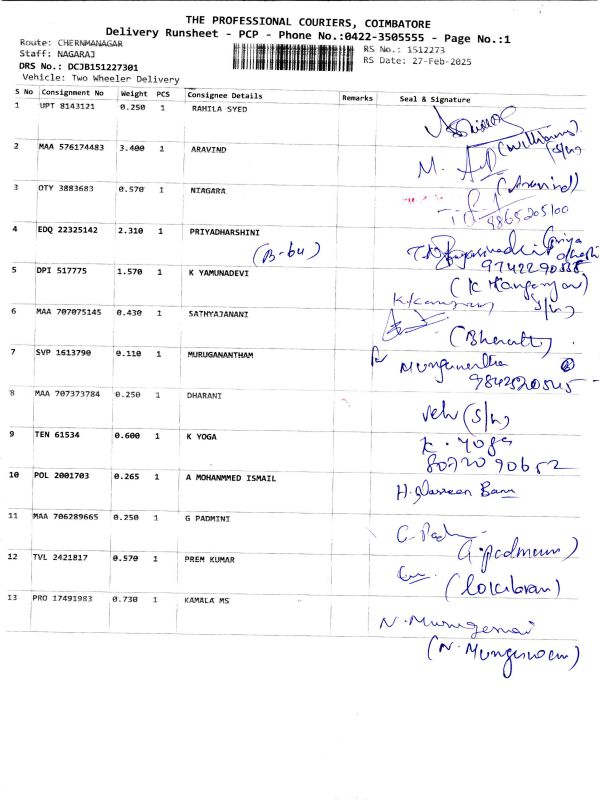 THE PROFESSIONAL COURIERS, COIMBATORE
Delivery Runsheet - PCP - Phone No.:0422-3505555 - Page No.:1
Route: CHERNMANAGAR
Staff: NAGARAJ
DRS No.: DCJB151227301
Vehicle: Two Wheeler Delivery
RS No.: 1512273
RS Date: 27-Feb-2025
S No Consignment No Weight PCS Consignee Details Remarks Seal & Signature
1 UPT 8143121 0.250 1 RAHILA SYED
2 MAA 576174483 3.400 1 ARAVIND
(Williams)
S/n
M.
3 OTY 3883683 0.570 1 NIAGARA
(Aravind)
9865205100
4 EDQ 22325142 2.310 1 PRIYADHARSHINI
(B-64)
(Priya
9742290558
5 DPI 517775 1.570 1 K YAMUNADEVI
(K
S/n)
6 MAA 707075145 0.430 1 SATHYAJANANI
(Bharath)
7 SVP 1613790 0.110 1 MURUGANANTHAM
9842520545
8 MAA 707373784 0.250 1 DHARANI
(S/n)
9 TEN 61534 0.600 1 K YOGA
K. Yoga
8072090652
10 POL 2001703 0.265 1 A MOHANMMED ISMAIL
H. Nasreen Banu
11 MAA 706289665 0.250 1 G PADMINI
G. Pad
12 TVL 2421817 0.570 1 PREM KUMAR
13 PRO 17491983 0.730 1 KAMALA MS